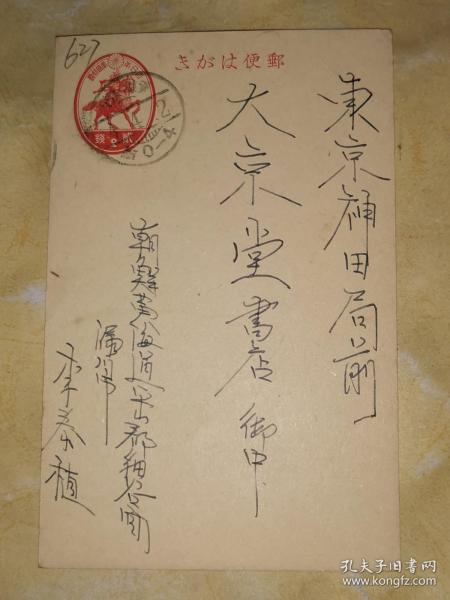 627
きがは便郵
東京神田局前
大京堂書店 御中
朝鮮黃海道平山郡細谷面
漏川市
李泰植
孔夫子旧书网
www.kongfz.com